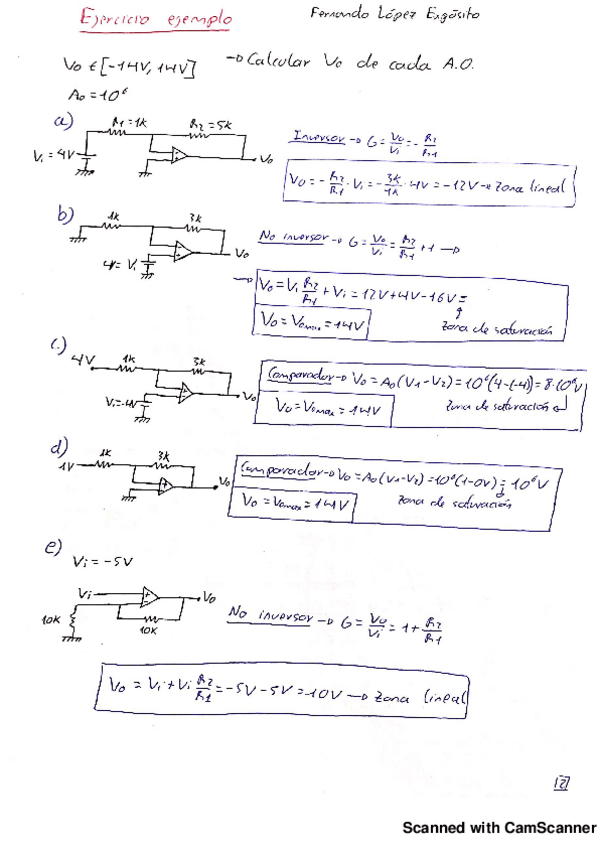 Ejercicio ejemplo
Fernando López Expósito
Vo ∈ [-14V, 14V] → Calcular Vo de cada A.O.
Ao = 10⁶
a)
R1 = 1K
R2 = 5K
Vi = 4V
Vo
Inversor → G = Vo/Vi = - R2/R1
Vo = - R2/R1 · Vi = - 3K/1K · 4V = -12V → Zona lineal
b)
1K
3K
4V = Vi
Vo
No inversor → G = Vo/Vi = R2/R1 + 1 →
→ Vo = Vi R2/R1 + Vi = 12V + 4V = 16V =
Vo = Vomax = 14V
Zona de saturación
c)
4V
1K
3K
Vi = -4V
Vo
Comparador → Vo = Ao (V1 - V2) = 10⁶ (4 - (-4)) = 8·10⁶ V
Vo = Vomax = 14V
Zona de saturación
d)
1V
1K
3K
Vo
Comparador → Vo = Ao (V1 - V2) = 10⁶ (1 - 0V) = 10⁶ V
Vo = Vomax = 14V
Zona de saturación
e)
Vi = -5V
Vi
Vo
10K
10K
No inversor → G = Vo/Vi = 1 + R2/R1
Vo = Vi + Vi R2/R1 = -5V - 5V = -10V → Zona lineal
Scanned with CamScanner